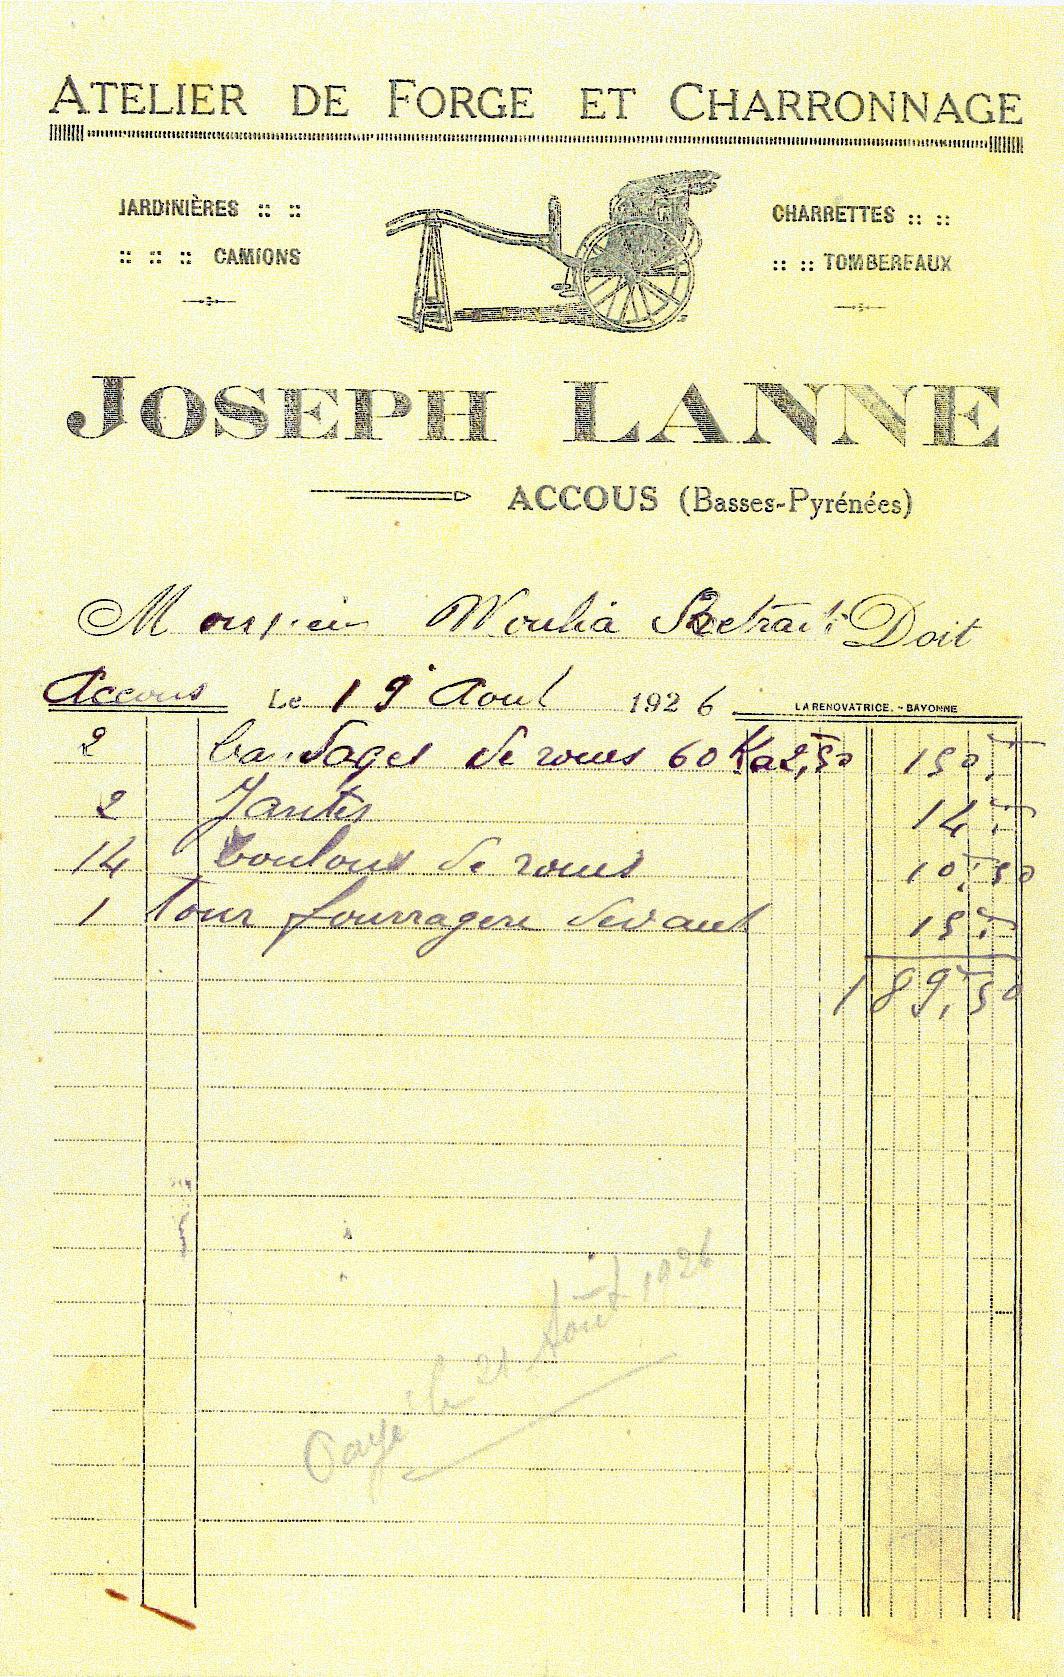 ATELIER DE FORGE ET CHARRONNAGE
JARDINIÈRES :: ::
:: :: :: CAMIONS
CHARRETTES :: ::
:: :: TOMBEREAUX
JOSEPH LANNE
ACCOUS (Basses-Pyrénées)
Monsieur Moulia Retraité Doit
Accous Le 19 Aout 1926
LA RENOVATRICE. - BAYONNE
2 bandages de roues 60 K a 2,50 150,-
2 Jantes 14,-
14 boulons de roues 10,50
1 tour fourragere devant 15,-
189,50
Payé le 21 Août 1926